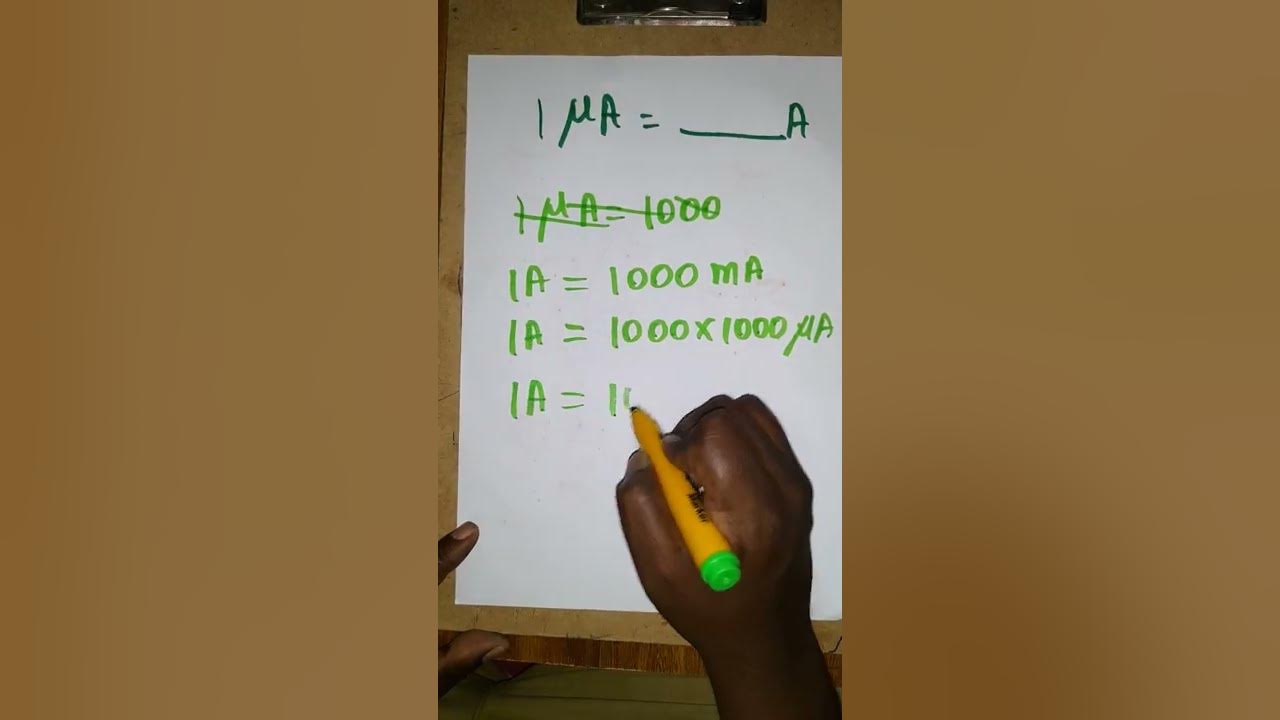 1 μA = ____ A
1 μA = 1000
1A = 1000 mA
1A = 1000x1000 μA
1A = 1